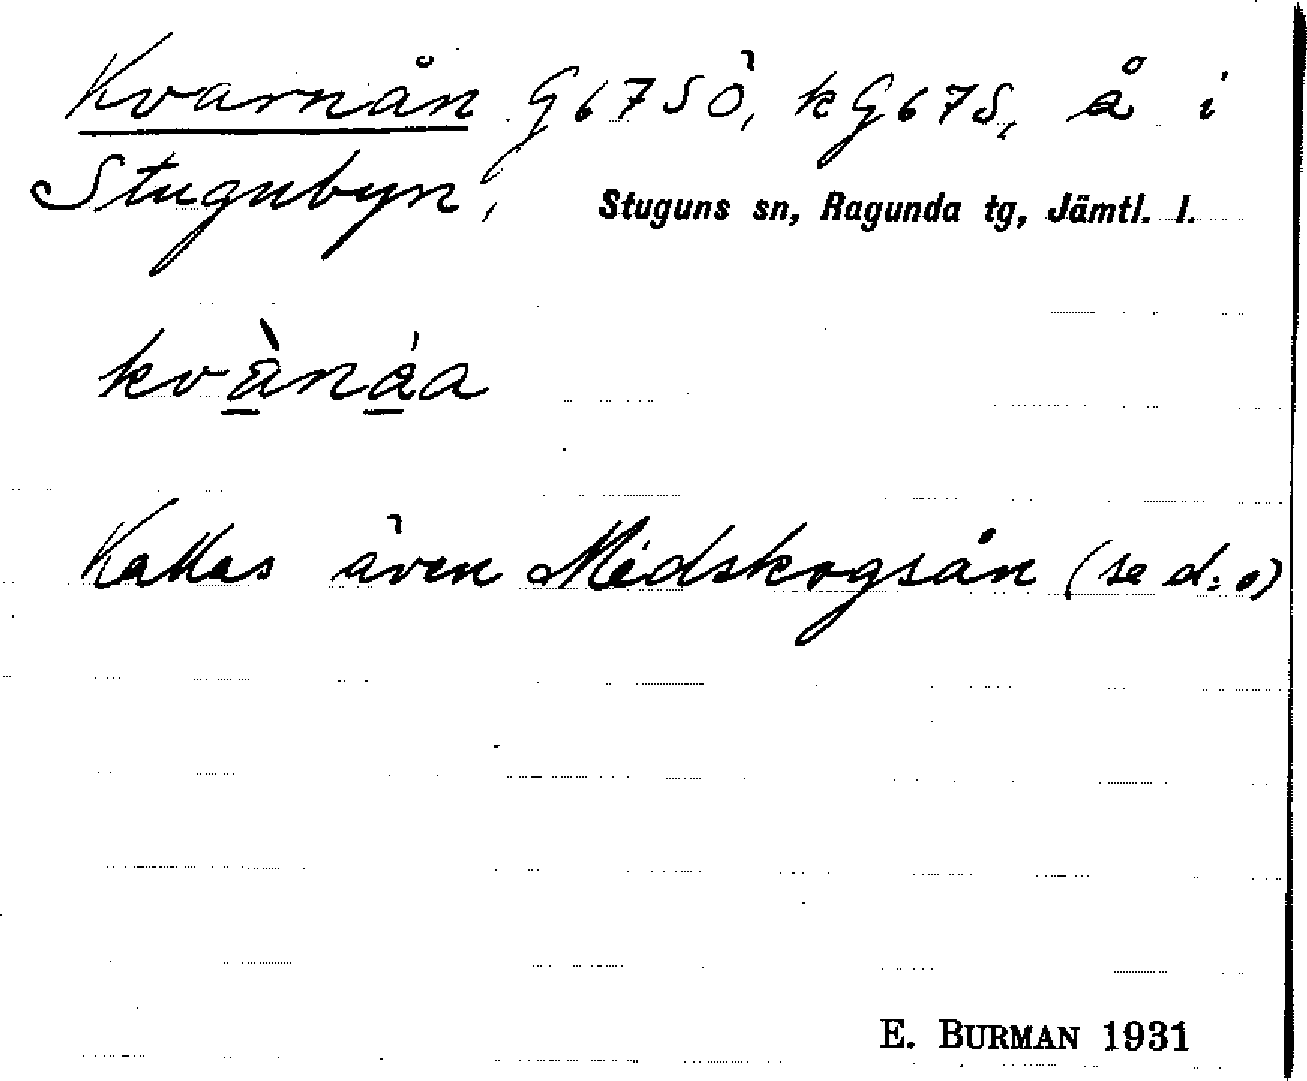 Kvarnån G67SÖ, kG67S, å i
Stugubyn, Stuguns sn, Ragunda tg, Jämtl. l.
kvànáa
Kallas även Midskogsån (se d:o)
E. BURMAN 1931